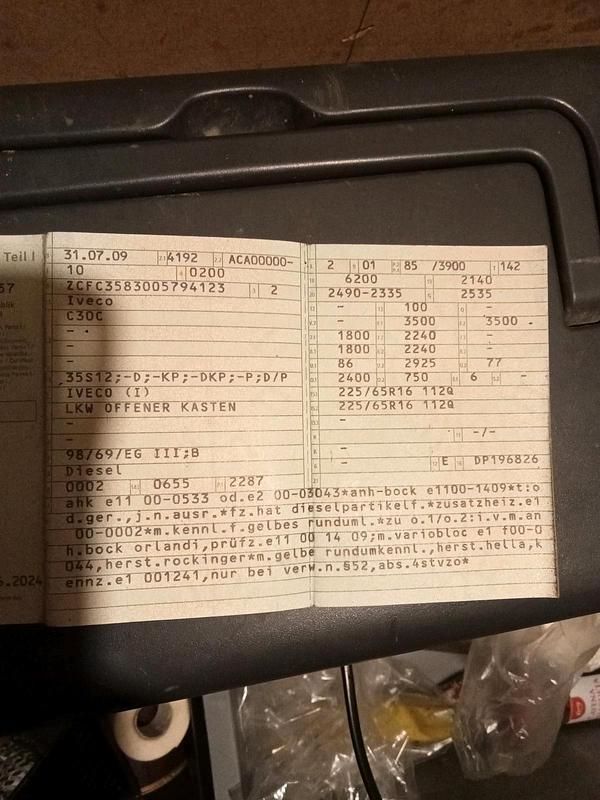 Teil I
31.07.09 4192 ACA00000-
10 0200
57
ZCFC3583005794123 2
Iveco
C30C
-
-
-
35S12;-D;-KP;-DKP;-P;D/P
IVECO (I)
LKW OFFENER KASTEN
-
-
98/69/EG III;B
Diesel
0002 0655 2287
2 01 85 /3900 142
6200 2140
2490-2335 2535
- 100 -
- 3500 3500
1800 2240 -
1800 2240 -
86 2925 77
2400 750 6 -
225/65R16 112Q
225/65R16 112Q
-
- -/-
- E DP196826
ahk e11 00-0533 od.e2 00-03043*anh-bock e1100-1409*t:o
d.ger.,j.n.ausr.*fz.hat dieselpartikelf.*zusatzheiz.e1
00-0002*m.kennl.f.gelbes runduml.*zu o.1/o.2:i.v.m.an
h.bock orlandi,prüfz.e11 00 14 09;m.variobloc e1 f00-0
044,herst.rockinger*m.gelbe rundumkennl.,herst.hella,k
ennz.e1 001241,nur bei verw.n.§52,abs.4stvzo*
.2024